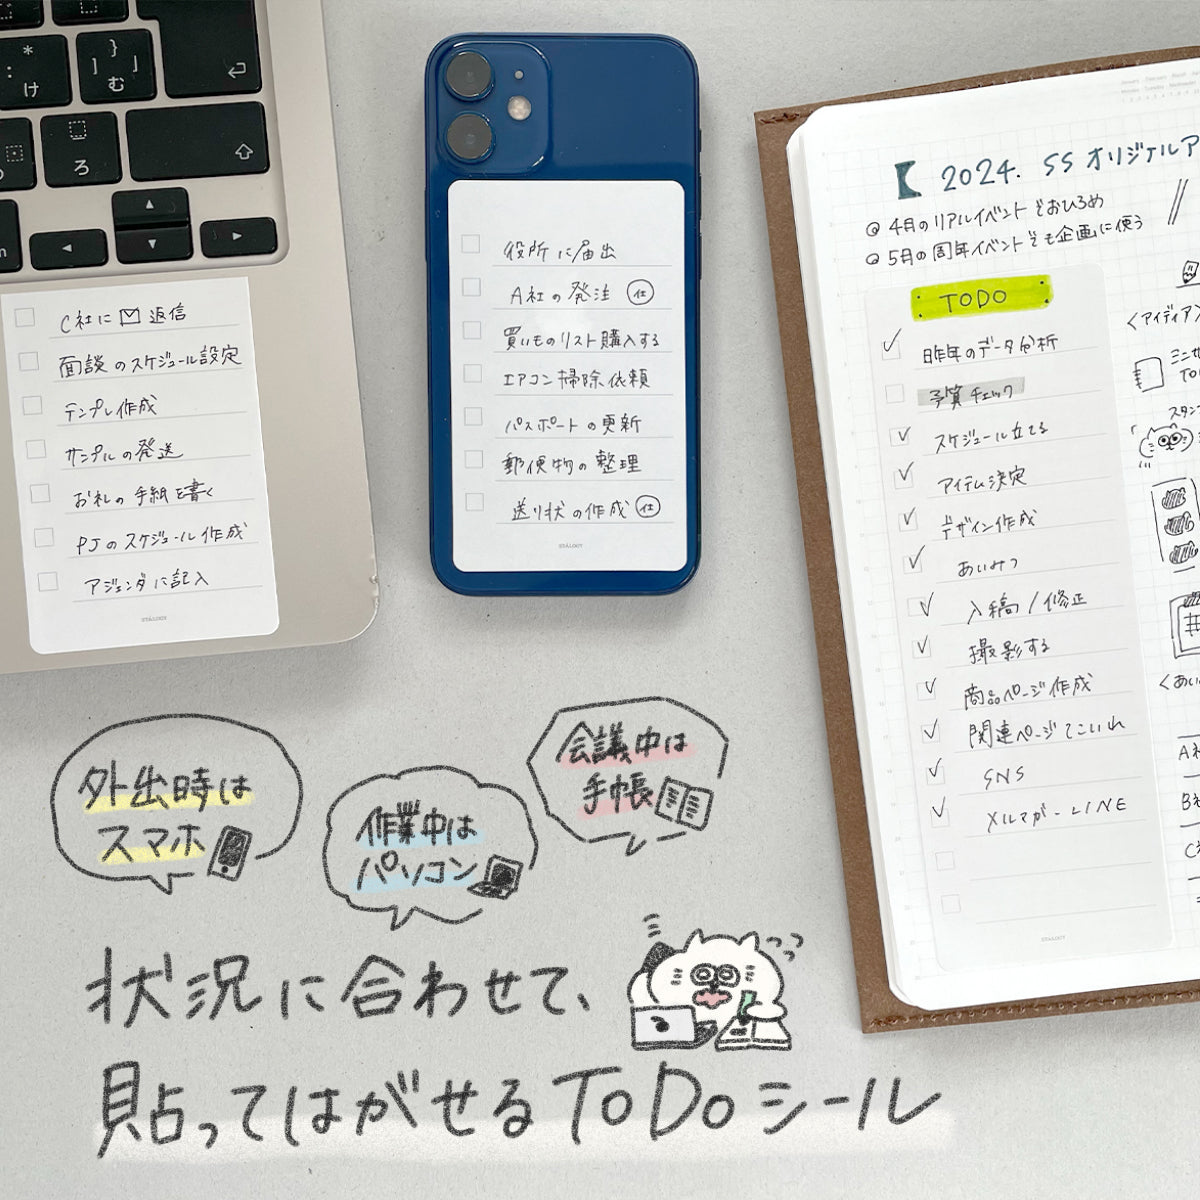 け
む
ろ
C社に 返信
面談のスケジュール設定
テンプレ作成
サンプルの発送
お礼の手紙を書く
PJのスケジュール作成
アジェンダに記入
STÁLOGY
役所に届出
A社の発注 仕
買いものリスト購入する
エアコン掃除依頼
パスポートの更新
郵便物の整理
送り状の作成 仕
STÁLOGY
2024. SS オリジナルア
4月のリアルイベントでおひろめ
5月の周年イベントでも企画に使う
TODO
昨年のデータ分析
予算チェック
スケジュール立てる
アイテム決定
デザイン作成
あいみつ
入稿/修正
撮影する
商品ページ作成
関連ページてこいれ
SNS
メルマガ-LINE
STÁLOGY
<アイディアン
ミニサ
TO
スタン
<あい
A社
B社
C社
外出時は
スマホ
作業中は
パソコン
会議中は
手帳
状況に合わせて、
貼ってはがせるToDoシール